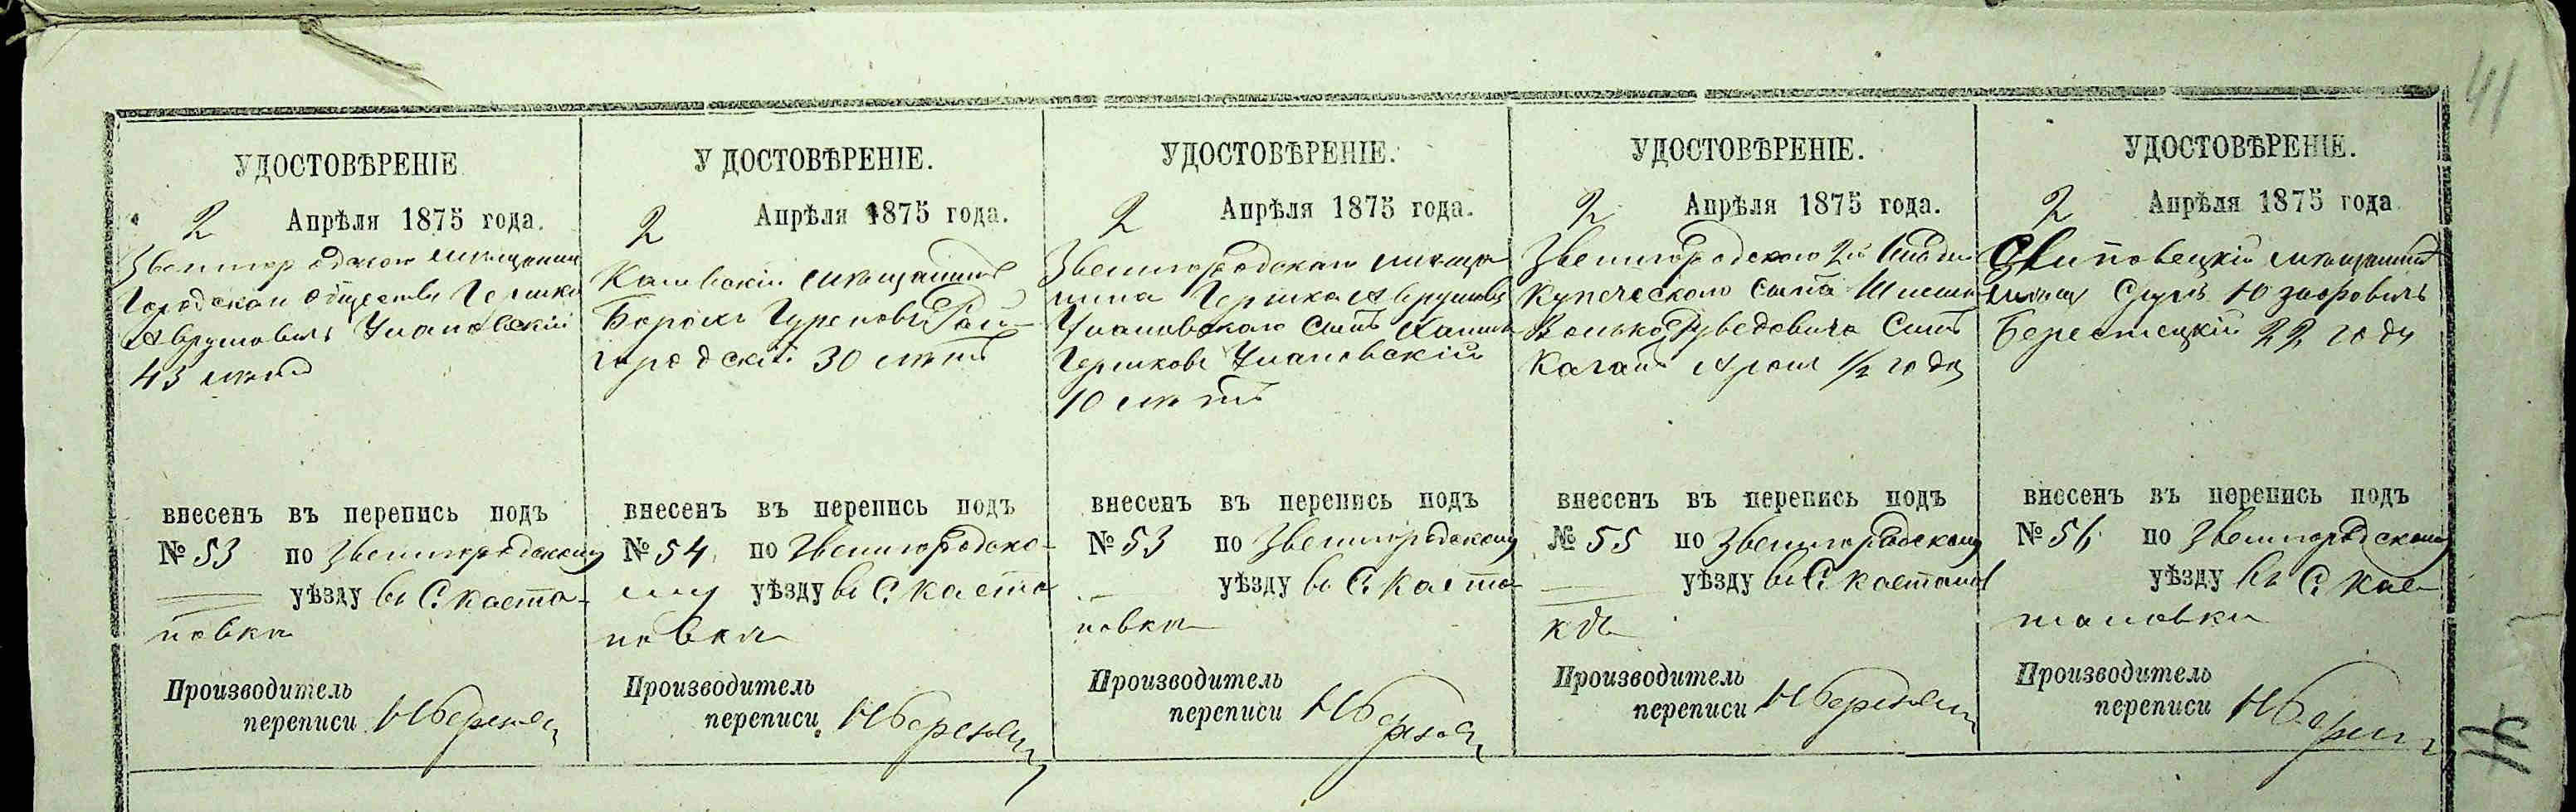 41
УДОСТОВѢРЕНІЕ
2 Апрѣля 1875 года.
Звенигородского мещанин
Городскои общества Гершко
Аврумовичъ Умановскій
43 летъ
внесенъ въ перепись подъ
№ 53 по Звенигородскому
уѣзду въ С. Каста-
новки
Производитель
переписи
УДОСТОВѢРЕНІЕ.
2 Апрѣля 1875 года.
Каневскій мѣщанинъ
Борохъ Гуреновъ Рай-
городскій 30 лѣтъ
внесенъ въ перепись подъ
№ 54 по Звенигородско-
му уѣзду въ С. Каста
новки
Производитель
переписи.
УДОСТОВѢРЕНІЕ.
2 Апрѣля 1875 года.
Звенигородскаго мѣща
нина Гершка Аврумова
Умановскаго сынъ Хаимъ
Гершковъ Умановскій
10 лѣтъ
внесенъ въ перепись подъ
№ 53 по Звенигородскому
уѣзду въ С. Каста
новки
Производитель
переписи
УДОСТОВѢРЕНІЕ.
2 Апрѣля 1875 года.
Звенигородского 2й
Купеческого сына
Волько Дуведовича Сынъ
Каган Арон 1/2 года
внесенъ въ перепись подъ
№ 55 по Звенигородскому
уѣзду въ С. Кастанов
кѣ
Производитель
переписи
УДОСТОВѢРЕНІЕ.
2 Апрѣля 1875 года
Липовецкій мѣщанинъ
Сруль Юзефовичъ
Берестецкій 22 года
внесенъ въ перепись подъ
№ 56 по Звенигородскому
уѣзду въ С. Кас
тановки
Производитель
переписи